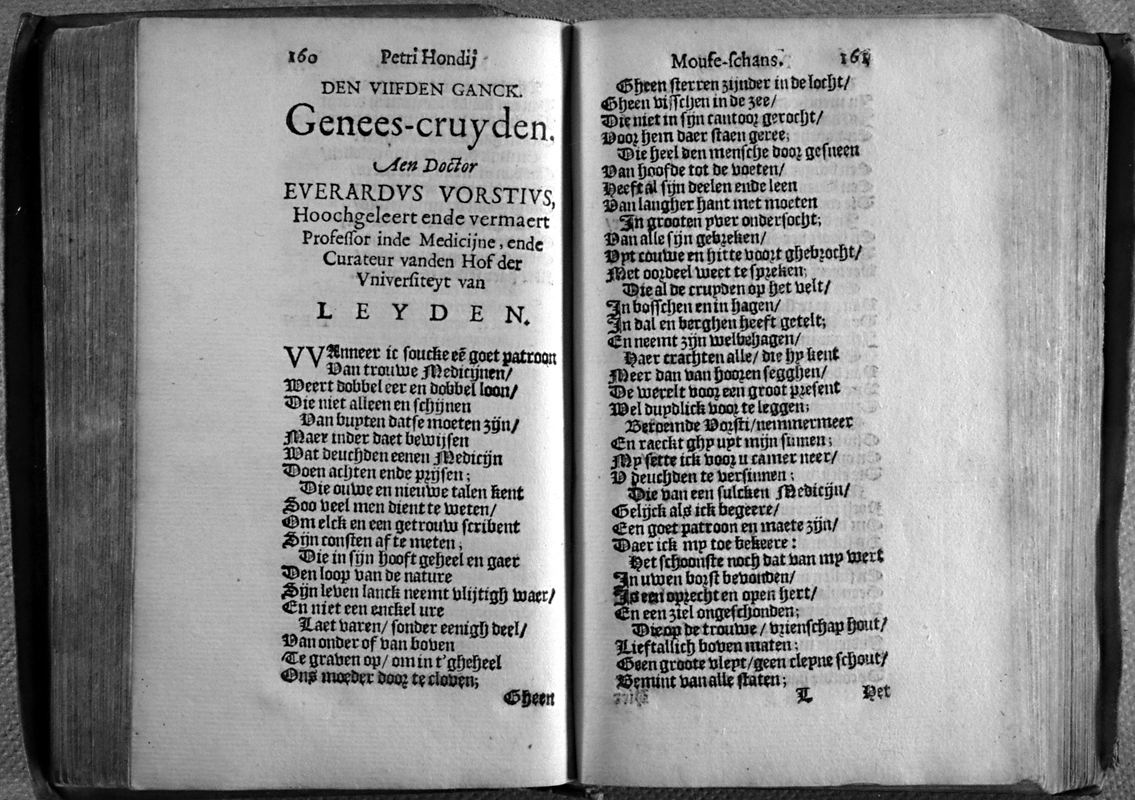 160 Petri Hondij
DEN VIIFDEN GANCK.
Genees-cruyden.
Aen Doctor
EVERARDVS VORSTIVS,
Hoochgeleert ende vermaert
Professor inde Medicijne, ende
Curateur vanden Hof der
Vniversiteyt van
LEYDEN.
VVAnneer ic soucke eẽ goet patroon
Van trouwe Medicijnen/
Weert dobbel eer en dobbel loon/
Die niet alleen en schijnen
Van buyten datse moeten zijn/
Maer inder daet bewijsen
Wat deuchden eenen Medicijn
Doen achten ende prijsen;
Die ouwe en nieuwe talen kent
Soo veel men dient te weten/
Om elck en een getrouw scribent
Sijn consten af te meten;
Die in sijn hooft geheel en gaer
Den loop van de nature
Sijn leven lanck neemt vlijtigh waer/
En niet een enckel ure
Laet varen/ sonder eenigh deel/
Van onder of van boven
Te graven op/ om in t'gheheel
Ons moeder door te cloven;
Gheen
Mouse-schans. 161
Gheen sterren zijnder in de locht/
Gheen visschen in de zee/
Die niet in sijn cantoor gerocht/
Voor hem daer staen geree;
Die heel den mensche door gesneen
Van hoofde tot de voeten/
Heeft al sijn deelen ende leen
Van laugher hant met moeten
In grooten yver ondersocht;
Van alle sijn gebreken/
Uyt couwe en hitte voort ghebrocht/
Met oordeel weet te spreken;
Die al de cruyden op het velt/
In bosschen en in hagen/
In dal en berghen heeft getelt;
En neemt zijn welbehagen/
Haer crachten alle/ die hy kent
Meer dan van hooren segghen/
De werelt voor een groot present
Wel duydlick voor te leggen;
Beroemde Vorsti/ nemmermeer
En raeckt ghy uyt mijn sinnen;
My sette ick voor u camer neer/
U deuchden te versinnen;
Die van een sulcken Medicijn/
Gelijck als ick begeere/
Een goet patroon en maete zijn/
Daer ick my toe bekeere:
Het schoonste noch dat van my wert
In uwen borst bevonden/
Is een oprecht en open hert/
En een ziel ongeschonden;
Die op de trouwe/ vrienschap hout/
Lieftallich boven maten;
Geen groote vleyt/ geen cleyne schout/
Bemint van alle staten;
L Het